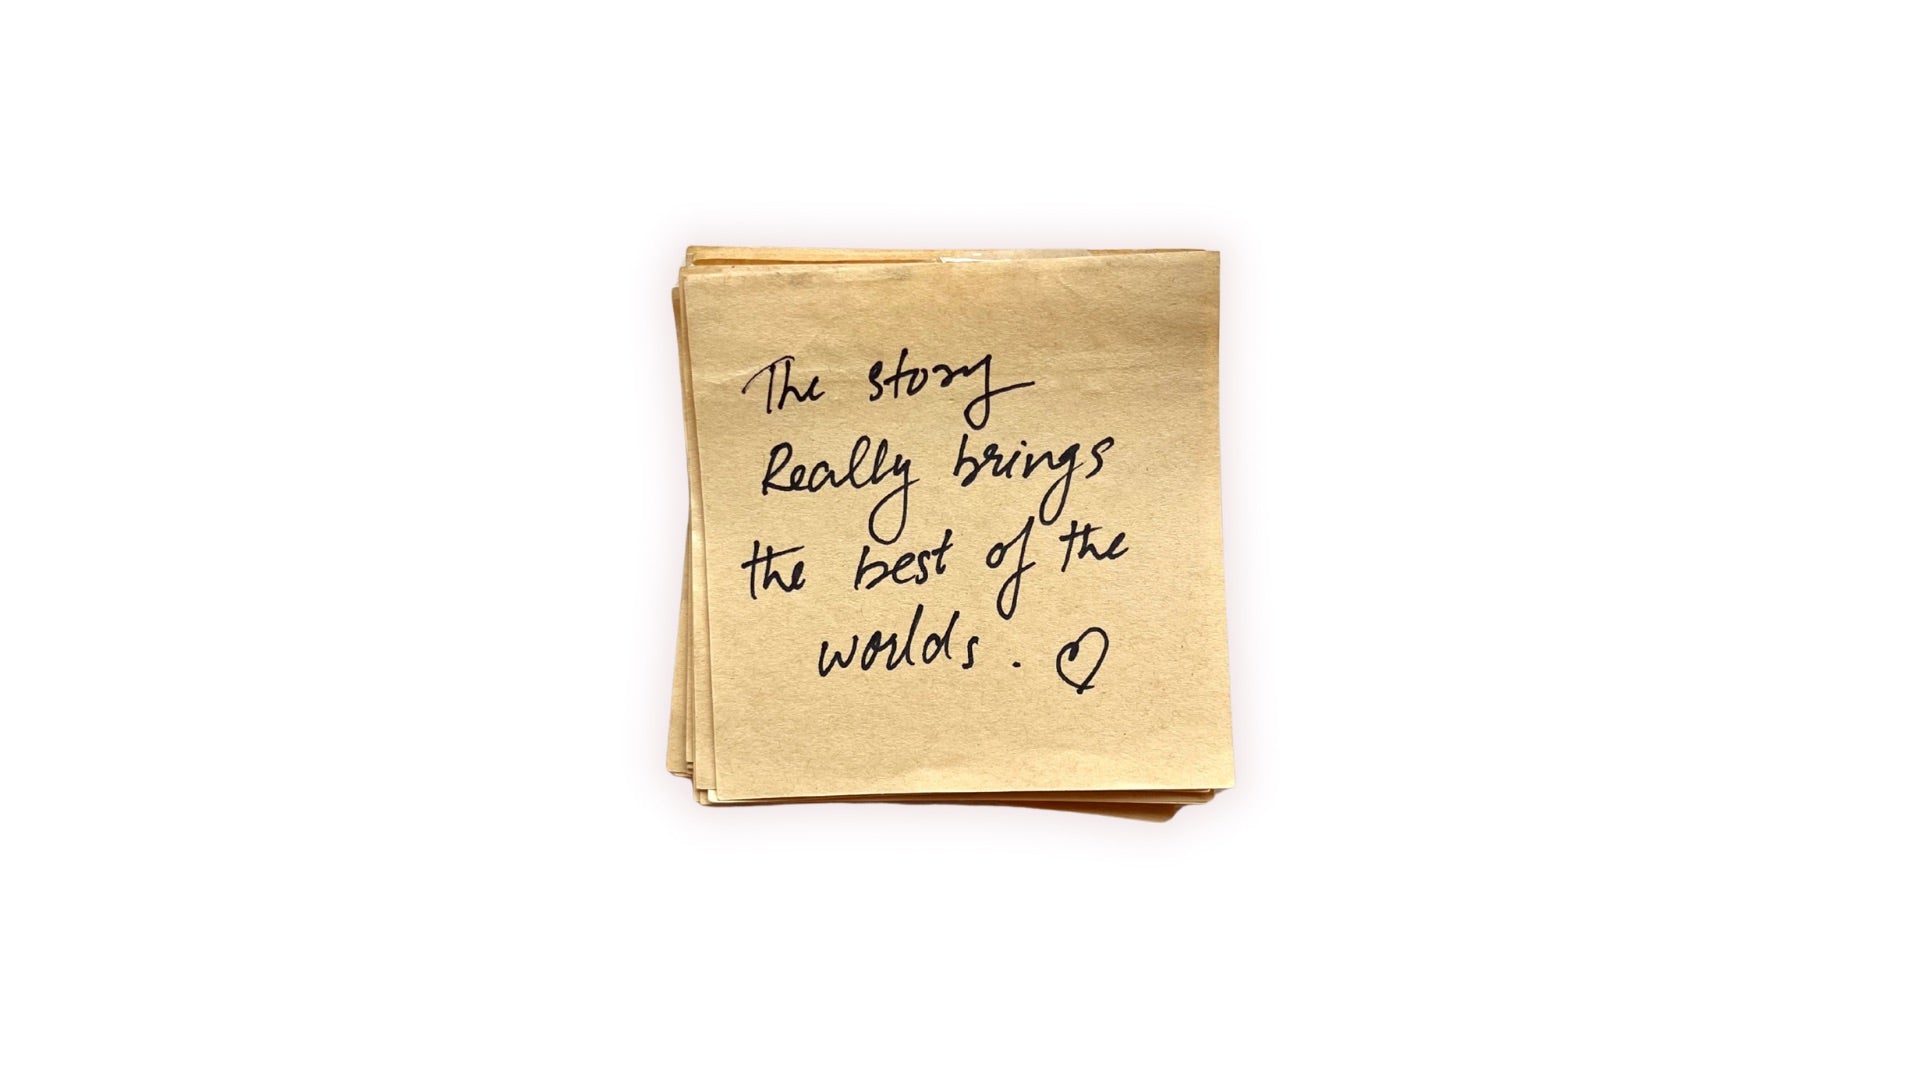 The story
Really brings
the best of the
worlds. ♡